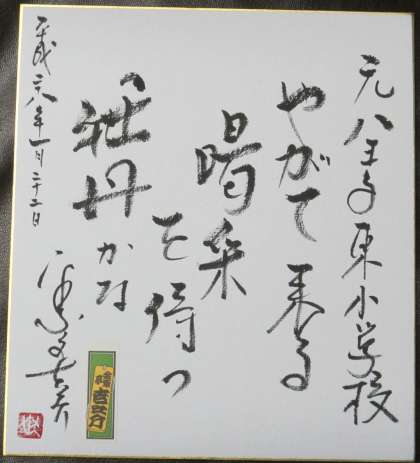 元八王子東小学校
やがて来る
喝采
を待つ
牡丹かな
平成二十八年一月二十二日